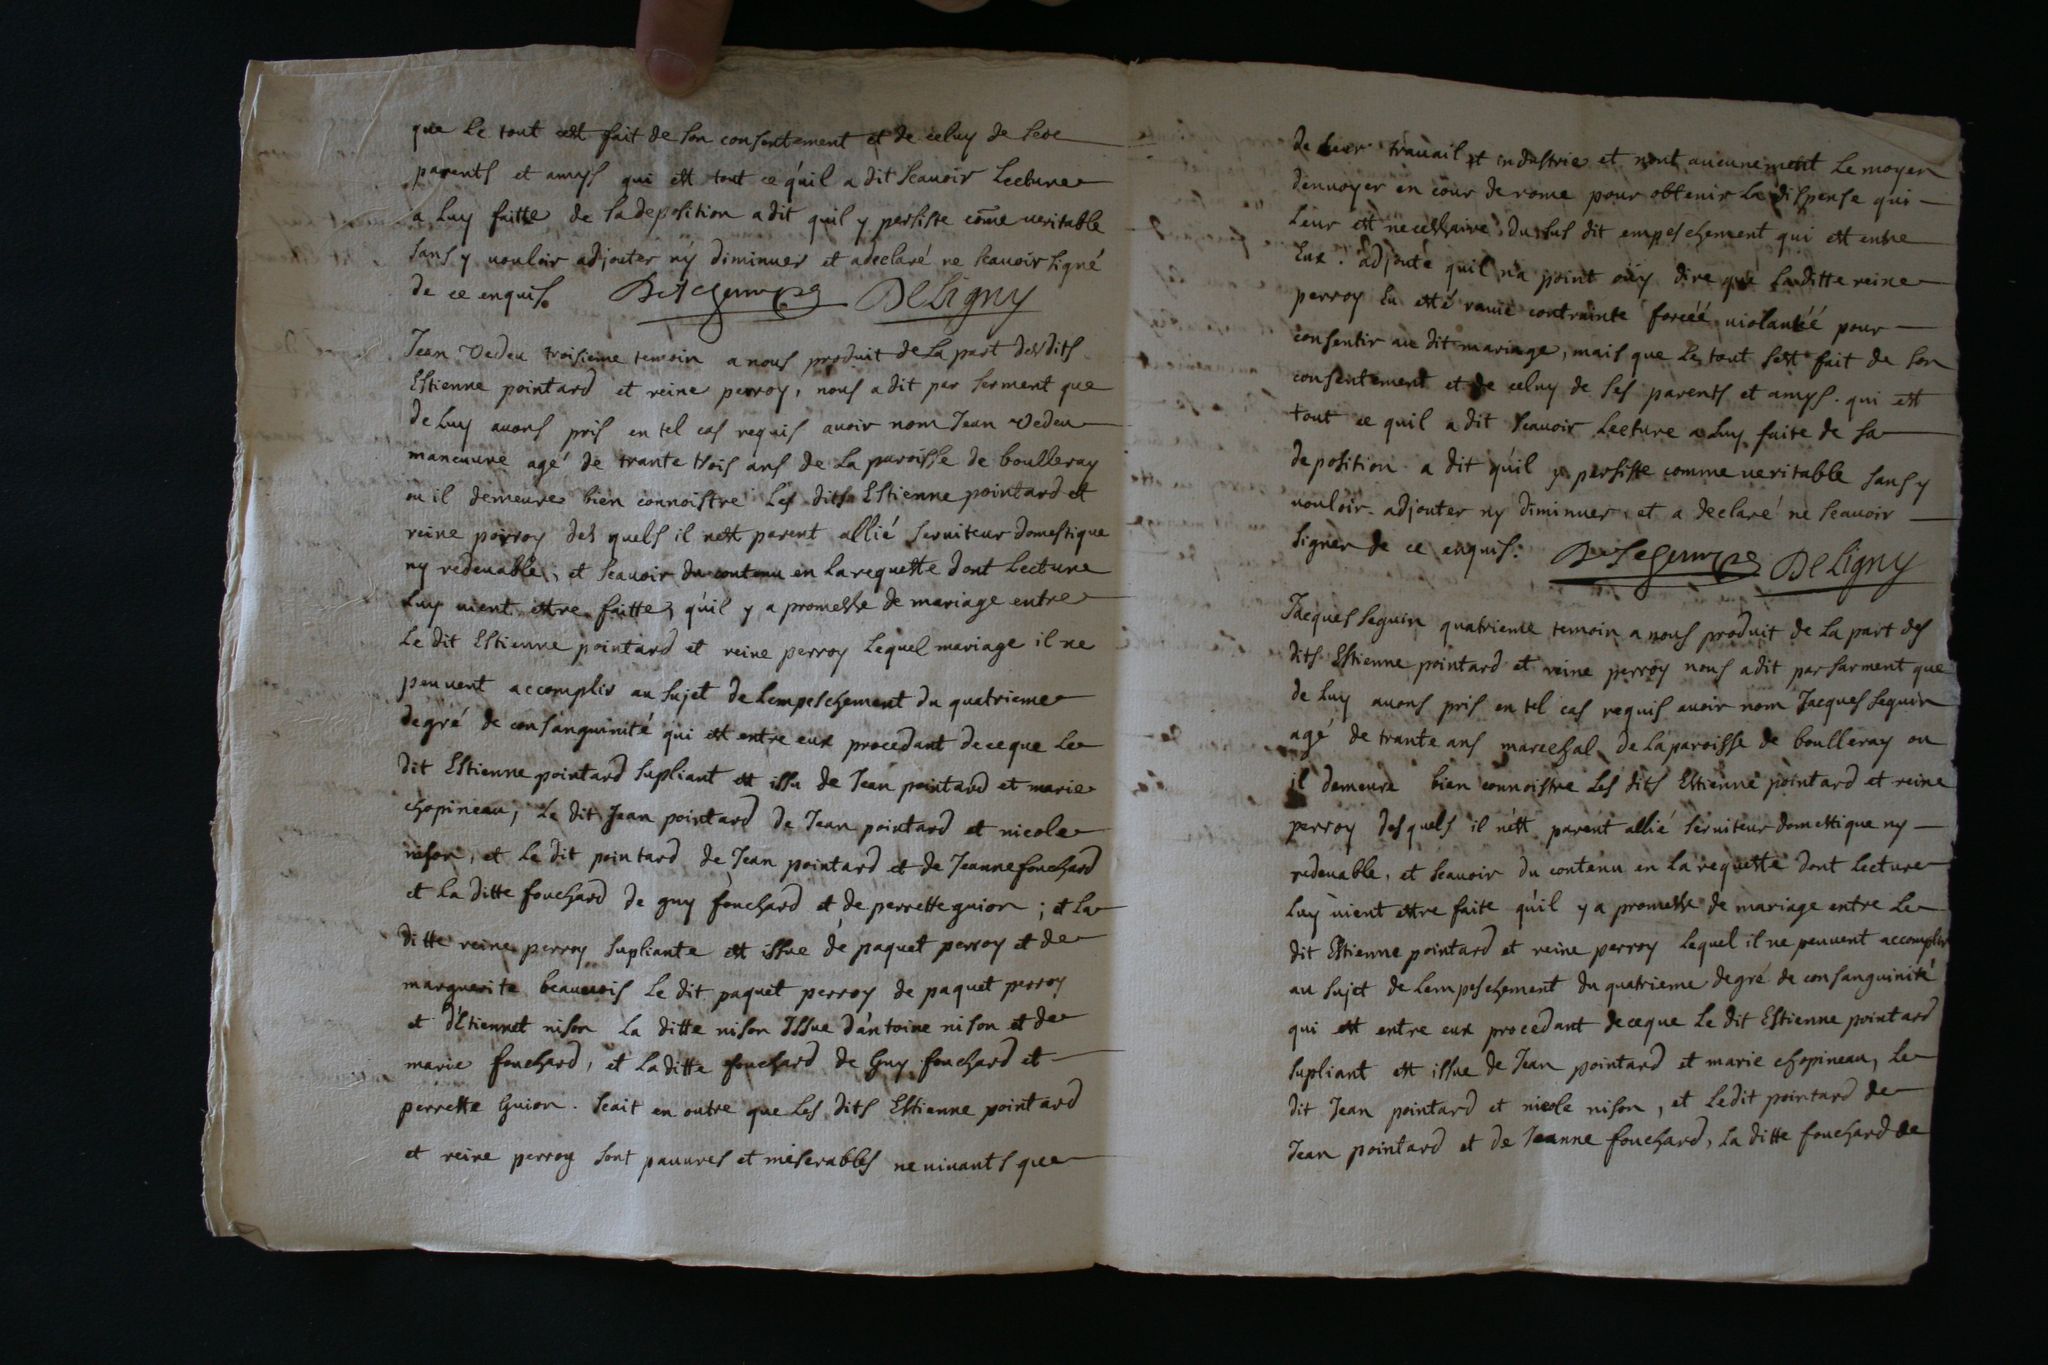 que le tout est fait de son consentement et de celuy de sese
parents et amys qui est tout ce quil a dit scauoir Lecture
a luy faitte de sa deposition a dit quil y persiste com̄e ueritable
sans y uouloir adjouter ny diminuer et a declaré ne scauoir signé
de ce enquis. Deligny
Jean Vedeu troisieme temoin a nous produit de la part desdits
Estienne pointard et reine perroy, nous a dit par serment que
de luy auons pris en tel cas requis auoir nom Jean Vedeu
maneuure agé de trante trois ans de la paroisse de boulleray
ou il demeure bien connoistre Les dits Estienne pointard et
reine perroy des quels il nest parent allié seruiteur domestique
ny redeuable, et scauoir du contenu en la requette dont lecture
luy uient estre faitte, quil y a promesse de mariage entre
Le dit Estienne pointard et reine perroy Lequel mariage il ne
peuuent accomplir au sujet de Lempeschement du quatrieme
degré de consanguinité qui est entre eux procedant de ce que Le
dit Estienne pointard supliant est issu de Jean pointard et marie
chopineau, Le dit Jean pointard de Jean pointard et nicole
nison, et Le dit pointard de Jean pointard et de Jeanne fouchard
et la ditte fouchard de guy fouchard et de perrette guion ; et La
ditte reine perroy supliante est issue de paquet perroy et de
marguerite beauuois Le dit paquet perroy de paquet perroy
et d'Etiennet nison La ditte nison Issue d'antoine nison et de
marie fouchard, et La ditte fouchard de Guy fouchard et
perrette Guion. scait en outre que Les dits Estienne pointard
et reine perroy sont pauures et miserables ne uiuants que
de leur trauail et industrie et nont aucunement Le moyen
denuoyer en cour de rome pour obtenir La dispense qui
Leur est necessaire du sus dit empeschement qui est entre
Eux. adjoute quil na point oüy dire que Laditte reine
perroy Eu esté rauie contrainte forcéé uiolantéé pour
consentir au dit mariage, mais que Le tout sest fait de son
consentement et de celuy de ses parents et amys. qui est
tout ce quil a dit scauoir Lecture a Luy faite de sa
deposition a dit quil y persiste comme ueritable sans y
uouloir adjouter ny diminuer, et a declaré ne scauoir
signer de ce enquis. Deligny
Jacques seguin quatrieme temoin a nous produit de La part des
dits Estienne pointard et reine perroy nous a dit par sarment que
de luy auons pris en tel cas requis auoir nom Jacques seguin
agé de trante ans marechal de la paroisse de boulleray ou
il demeure bien connoistre Les dits Estienne pointard et reine
perroy des quels il nest parent allié seruiteur domestique ny
redeuable, et scauoir du contenu en La requette dont Lecture
Luy uient estre faite quil y a promesse de mariage entre Le
dit Estienne pointard et reine perroy Lequel il ne peuuent accomplir
au sujet de Lempeschement du quatrieme degré de consanguinité
qui est entre eux procedant de ce que Le dit Estienne pointard
supliant est issue de Jean pointard et marie chopineau, Le
dit Jean pointard et nicole nison, et Ledit pointard de
Jean pointard et de Jeanne fouchard, La ditte fouchard de